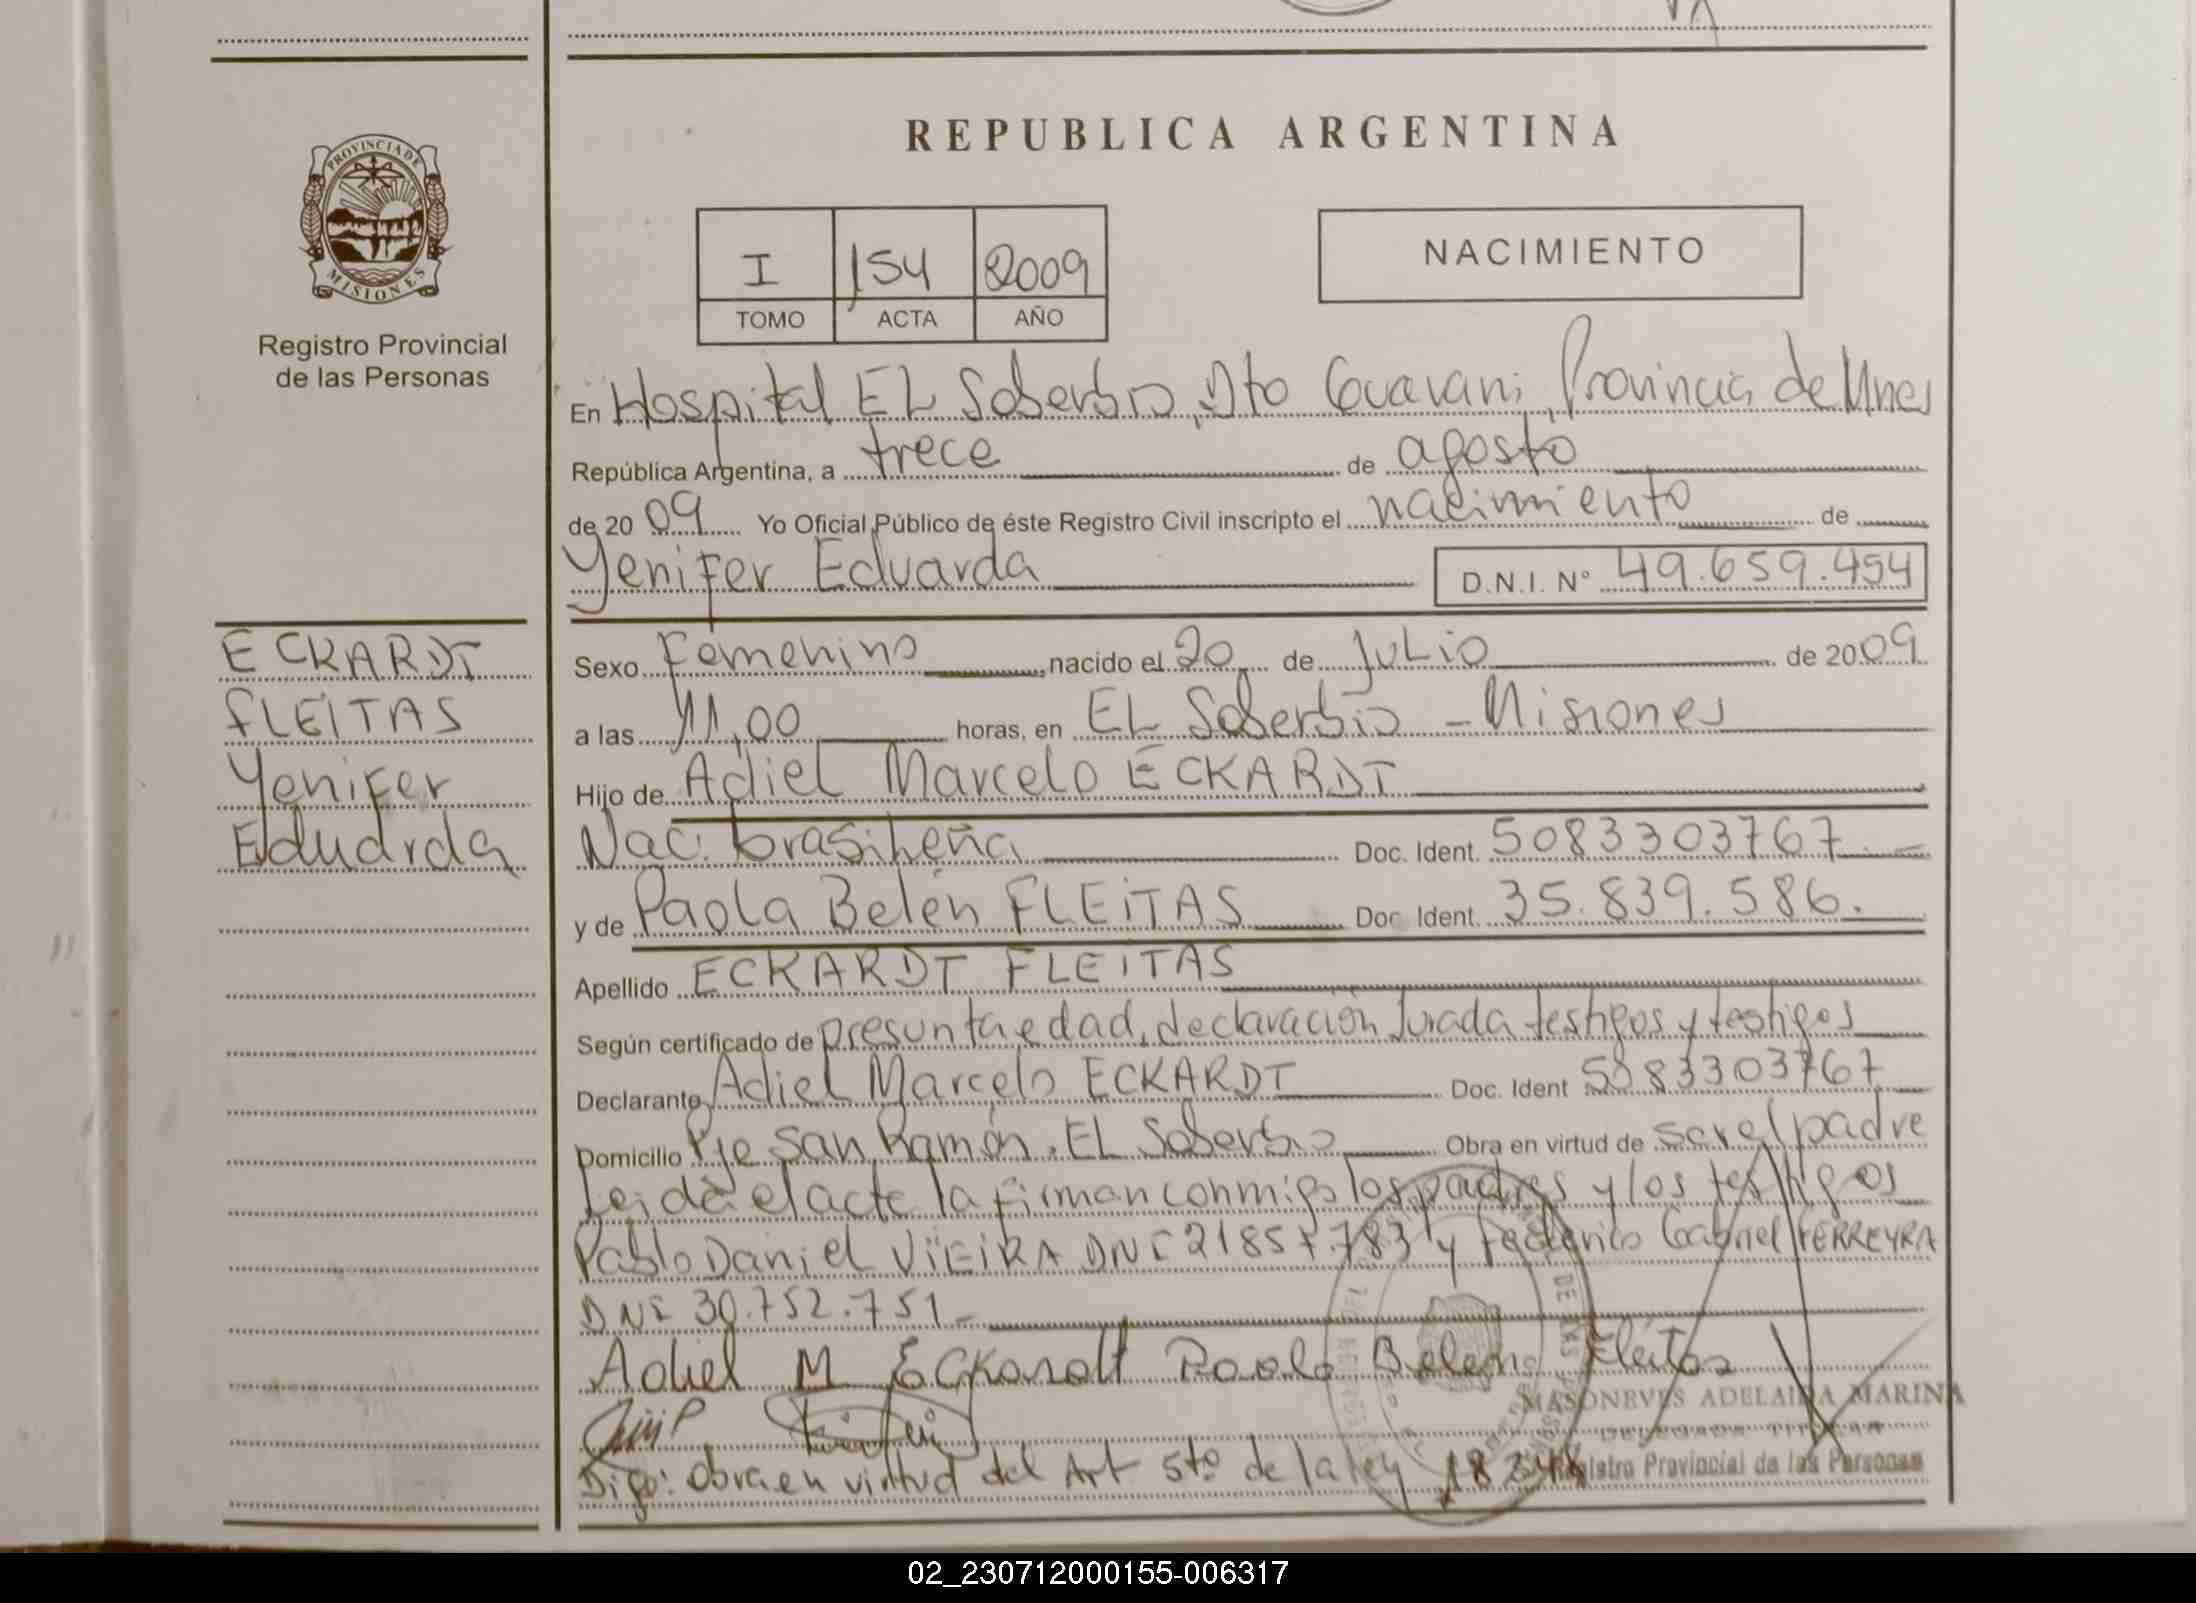 REPUBLICA ARGENTINA
PROVINCIA DE
MISIONES
Registro Provincial
de las Personas
I 154 2009
TOMO ACTA AÑO
NACIMIENTO
En Hospital EL Soberbio, Dto Guarani, Provincia de Mnes
República Argentina, a trece de agosto
de 2009 Yo Oficial Público de éste Registro Civil inscripto el nacimiento de
Yenifer Eduarda D.N.I. Nº 49.659.454
ECKARDT
FLEITAS
Yenifer
Eduarda
Sexo Femenino nacido el 20 de Julio de 2009
a las 11,00 horas, en EL Soberbio - Misiones
Hijo de Adiel Marcelo ECKARDT
Nac. brasileña Doc. Ident. 5083303767.-
y de Paola Belén FLEiTAS Doc. Ident. 35.839.586.
Apellido ECKARDT FLEiTAS
Según certificado de presunta edad, declaración Jurada testigos y testigos
Declarante Adiel Marcelo ECKARDT Doc. Ident 5083303767
Domicilio Pje San Ramón. EL Soberbio Obra en virtud de ser el padre
Leida el acta la firman conmigo los padres y los testigos
Pablo Daniel ViEiRA DNI 21857.783 y Federico Gabriel FERREYRA
DNI 30.752.751-
Adiel M Eckardt Paola Belen Fleitas
MASONEVES ADELAIDA MARINA
DELEGADA TITULAR
Registro Provincial de las Personas
Digo: Obra en virtud del Art 5to de la ley 18248
02_230712000155-006317